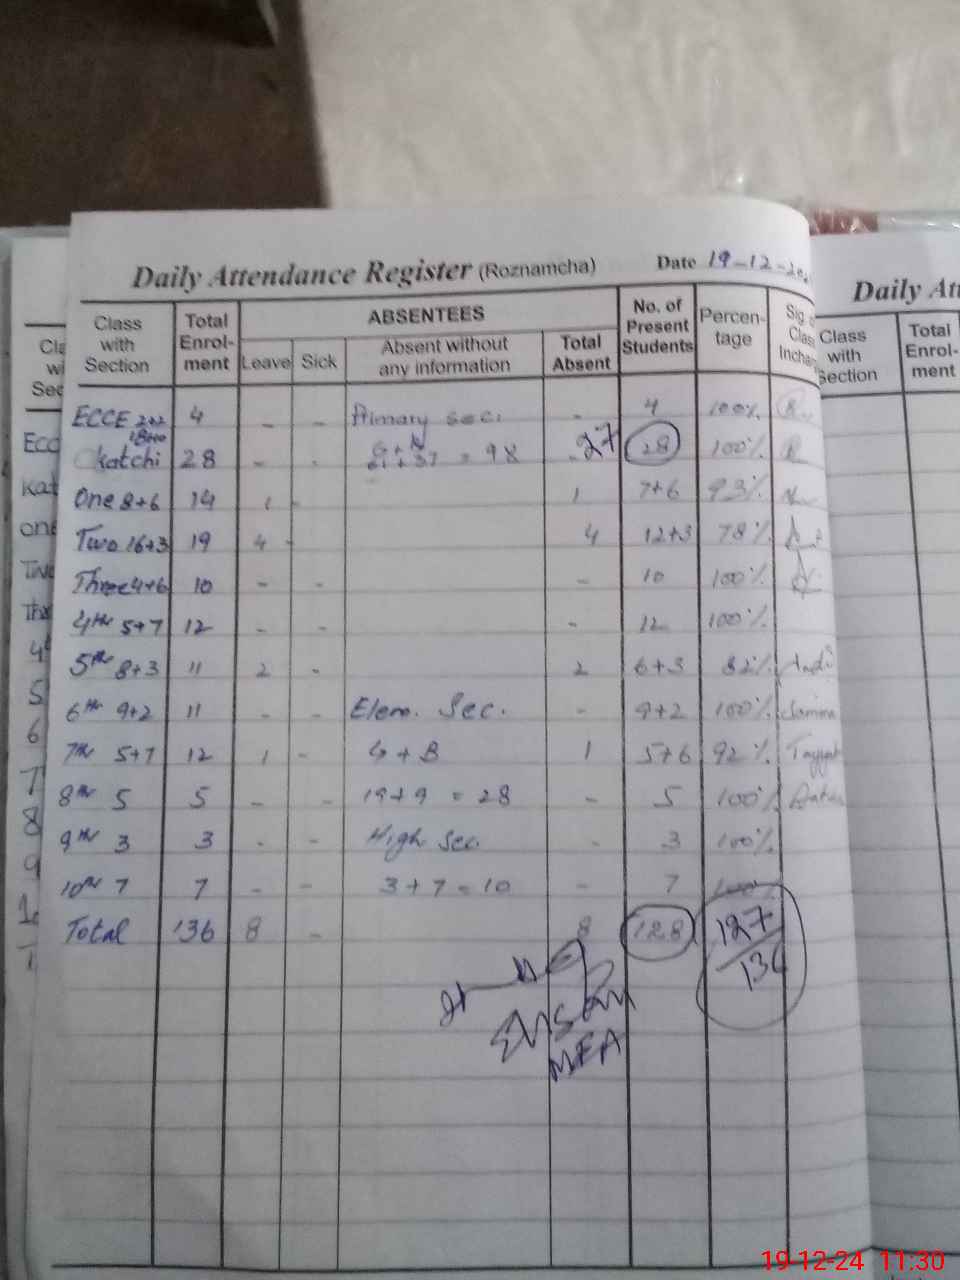 Daily Attendance Register (Roznamcha) Date 19-12-20
Class with Section Total Enrol-ment ABSENTEES No. of Present Students Percen-tage Sig. Class Incha
Leave Sick Absent without any information Total Absent
ECCE 2+2 4 - - Primary Sec. - 4 100%
Katchi 28 - - = 98 - 27 28 100%
One 8+6 14 1 - 1 7+6 93%
Two 16+3 19 4 - 4 12+3 78%
Three 4+6 10 - - - 10 100%
4th 5+7 12 - - - 12 100%
5th 8+3 11 2 - 2 6+3 82%
6th 9+2 11 - - Elem. Sec. - 9+2 100% Samina
7th 5+7 12 1 - G + B 1 5+6 92% Tayyab
8th 5 5 - - 19+9 = 28 - 5 100%
9th 3 3 - - High Sec. - 3 100%
10th 7 7 - - 3+7=10 - 7 100%
Total 136 8 - 8 128 127/136
MEA
Daily Att
Class with Section Total Enrol-ment
19-12-24 11:30